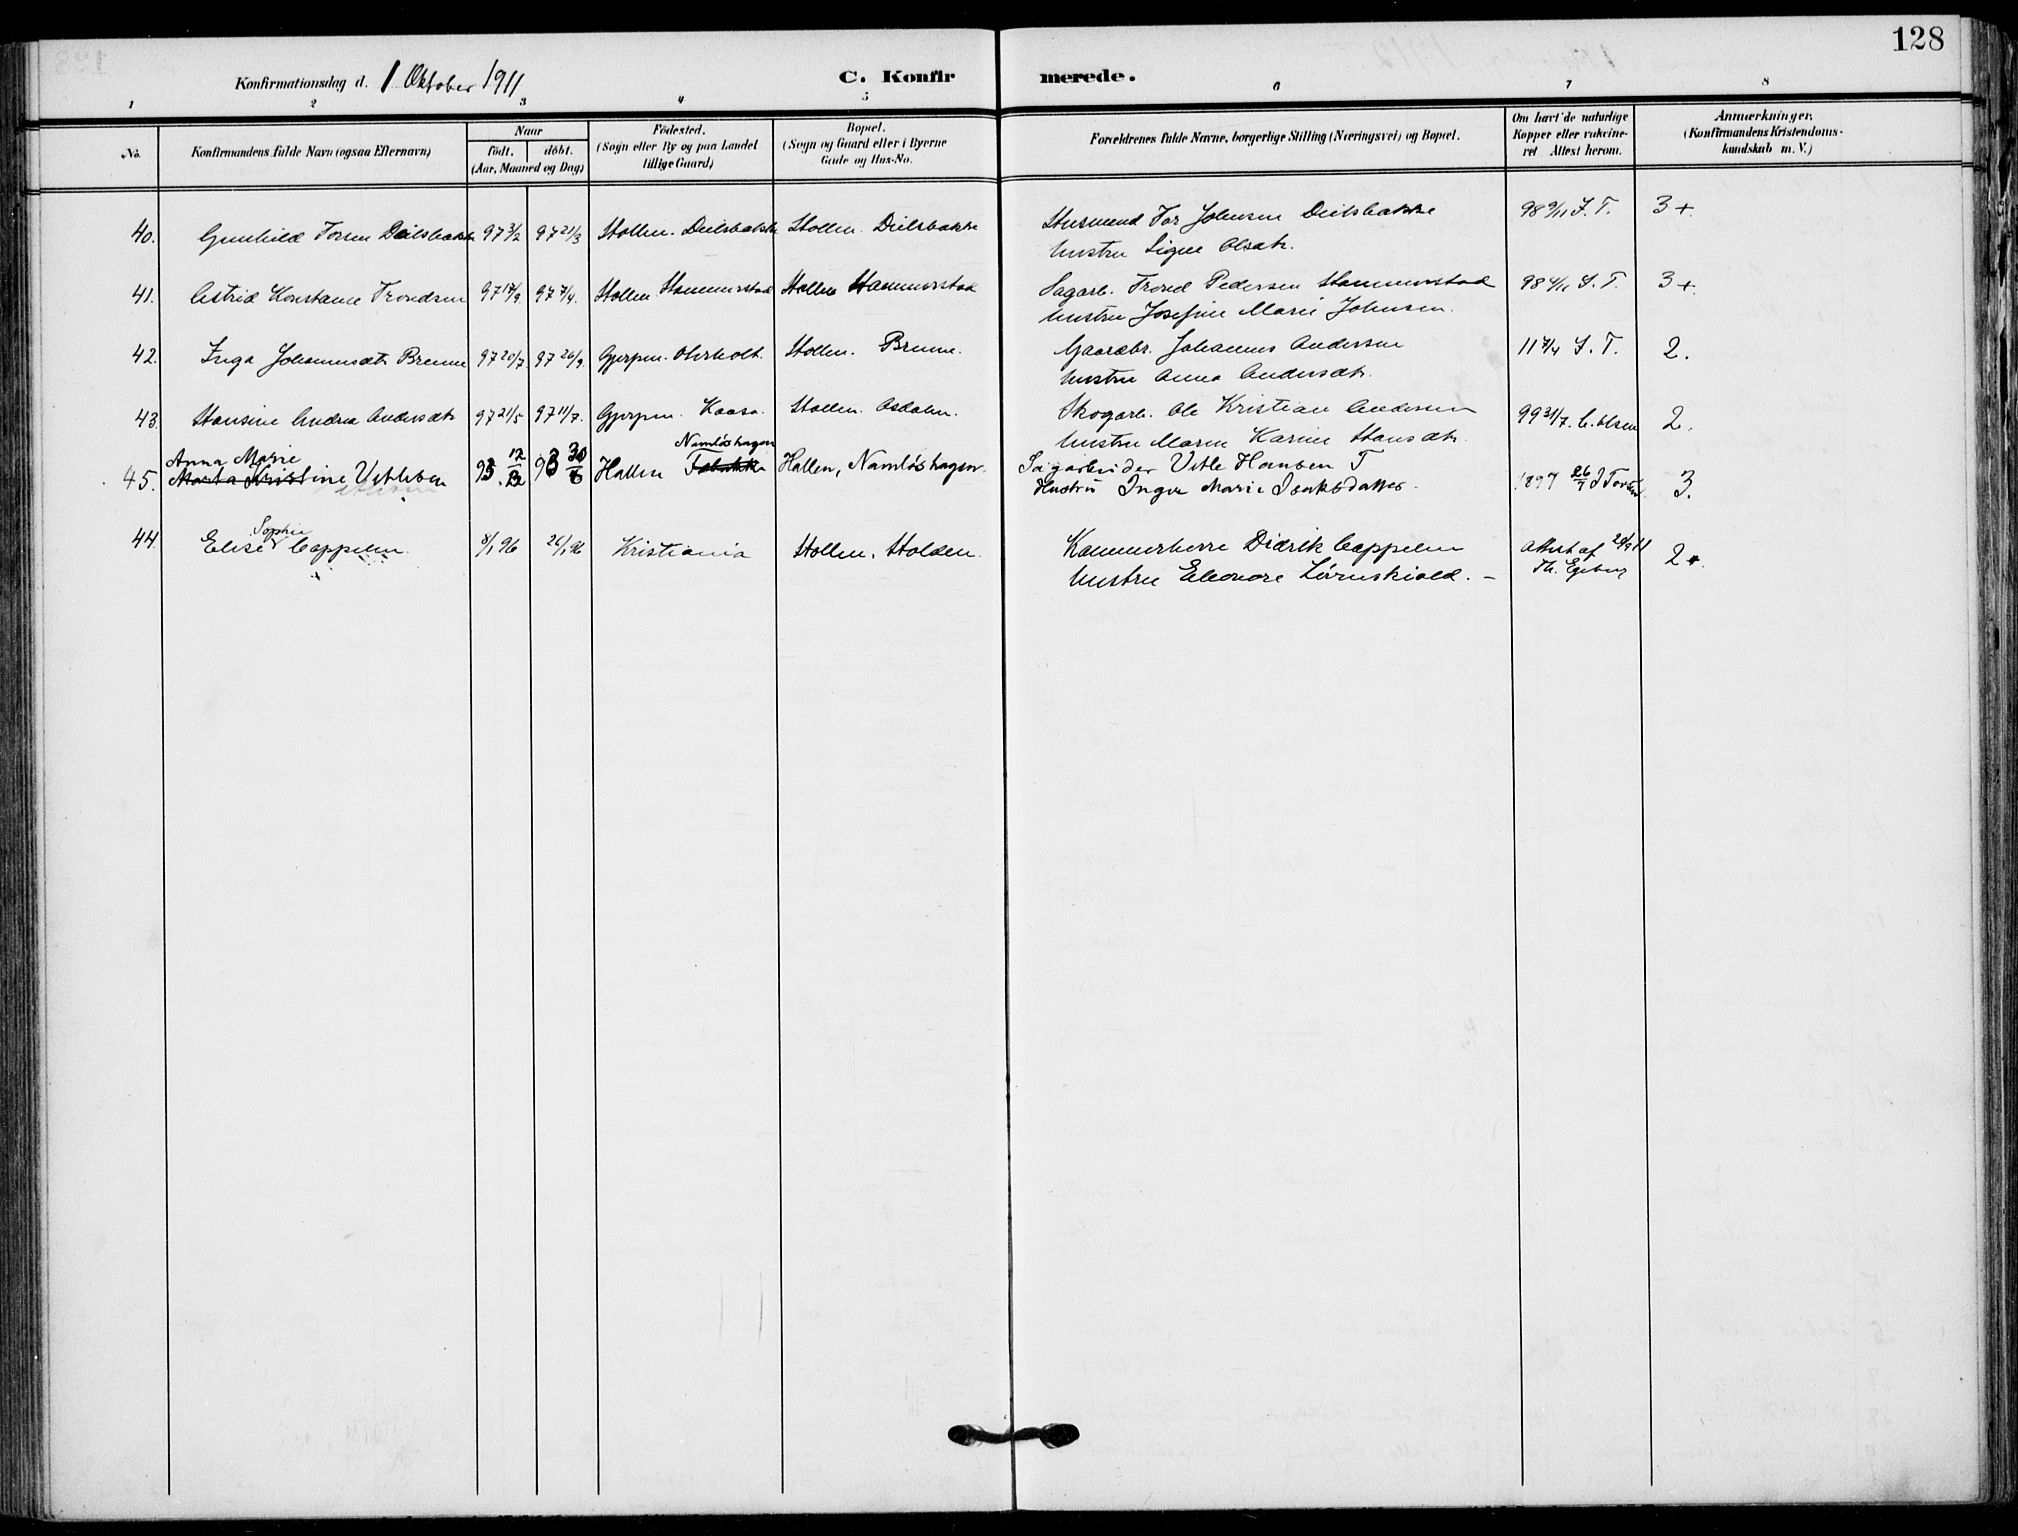 128
Konfirmationsdag d. 1 Oktober 1911
C. Konfirmerede.
1 2 3 4 5 6 7 8
No.
Konfirmandens fulde Navn (ogsaa Efternavn)
Naar
födt. döbt.
(Aar, Maaned og Dag)
Födested.
(Sogn eller By og paa Landet
tillige Gaard)
Bopæl.
(Sogn og Gaard eller i Byerne
Gade og Hus-No.
Forældrenes fulde Navne, borgerlige Stilling (Næringsvei) og Bopæl.
Om havt de naturlige
Kopper eller vakcine-
ret Attest herom.
Anmærkninger.
(Konfirmandens Kristendoms-
kundskab m. V.)
40. Gunhild Torsen Deilsbakke 97 3/2 97 21/3 Hollen. Deilsbakke Hollen. Deilsbakke Husmand Tor Johnsen Deilsbakke 98 9/11 J. T. 3+
hustru Signe Olsdtr.
41. Astrid Konstance Trondsen 97 97 7/4 Hollen Hammerstad Hollen Hammerstad Sagarb. Trond Pedersen Hammerstad 98 J. T. 3+.
hustru Josefine Marie Johnsen.
42. Inga Johannesdtr Brenne 97 20/7 97 26/9 Gjerpen. Hollen. Brenne. Gaardbr. Johannes Andersen 11 7/4 J. T. 2.
hustru Anna Andersdtr.
43. Hansine Andrea Andersdtr 97 21/5 97 11/7. Gjerpen. Kaasa. Hollen. Aasdalen. Skogarb. Ole Kristian Andersen 99 31/7. C. Olsen 2.
hustru Maren Karine Hansdtr.
Anna Marie Namløshagen
45. Marta Kristine Vetlesen 93 12/ 93 30/6 Hollen Hollen, Namløshagen. Sagarbeider Vetle Hansen T 1897 26/7 3.
Hustru Inger Marie Isaksdatter.
Sophie
44. Elise Cappelen. 8/1 96 26/1 96 Kristiania Hollen. Holden. Kammerherre Didrik Cappelen Attest af 2+.
hustru Eleonore Løvenskiold. Th. Egeberg